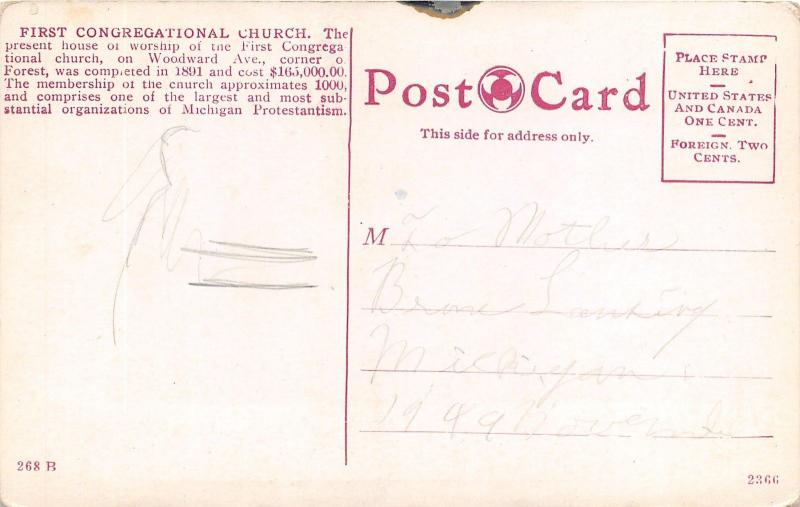 FIRST CONGREGATIONAL CHURCH. The
present house of worship of the First Congrega
tional church, on Woodward Ave., corner o
Forest, was completed in 1891 and cost $165,000.00.
The membership of the church approximates 1000,
and comprises one of the largest and most sub-
stantial organizations of Michigan Protestantism.
Post Card
This side for address only.
PLACE STAMP
HERE
UNITED STATES
AND CANADA
ONE CENT.
FOREIGN. TWO
CENTS.
M To Mother
Lansing
Michigan
19
268 B
2366